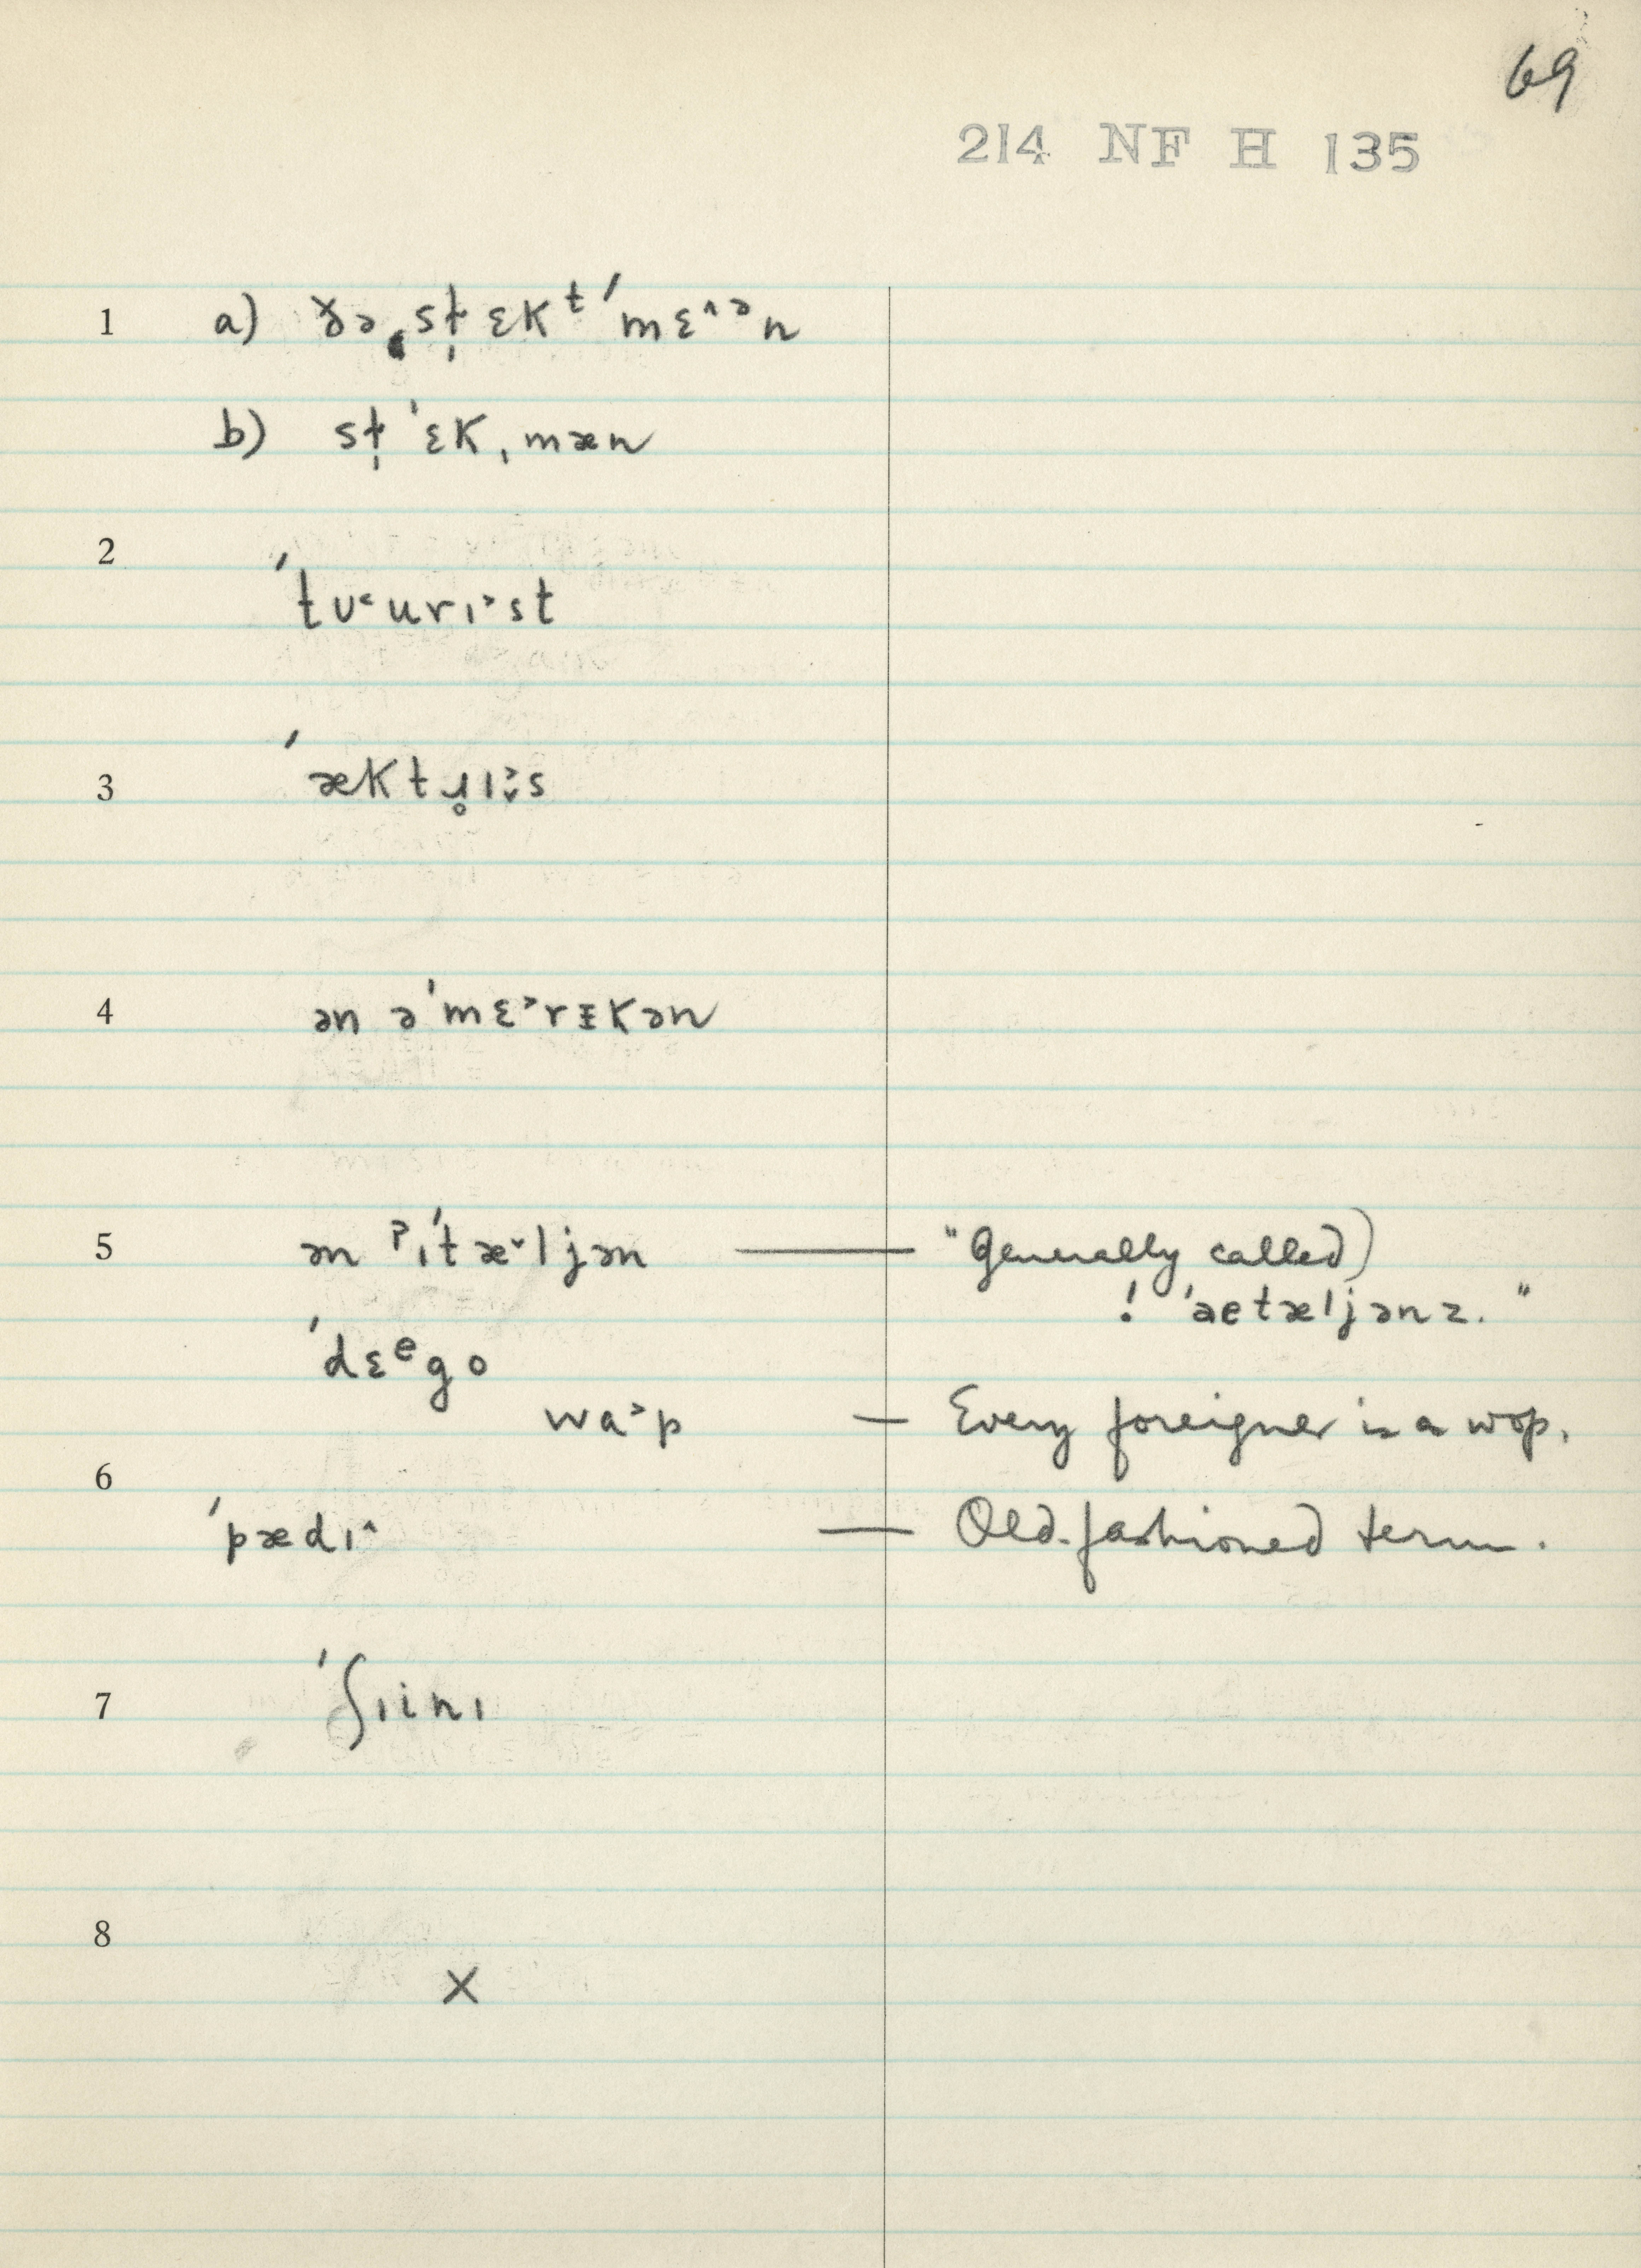 69
214 NF H 135
1 a) ðə ˌst̩ɛkᵗ ˈmɛ^ᵊn
b) st̩ ˈɛk ˌmæn
2
ˈtʊ˂urɪ˃st
3 ˈæktɹ̥ɪ˃̬s
4 ən əˈmɛ˃rᵻkən
5 ən ˀɪˈtæ˅ljən — "Generally called)
! ˈaetæljənz."
ˈdɛᵉgo
wa˃p — Every foreigner is a wop.
6
ˈpædɪ^ — Old-fashioned term.
7 ˈʃɪinɪ
8
X